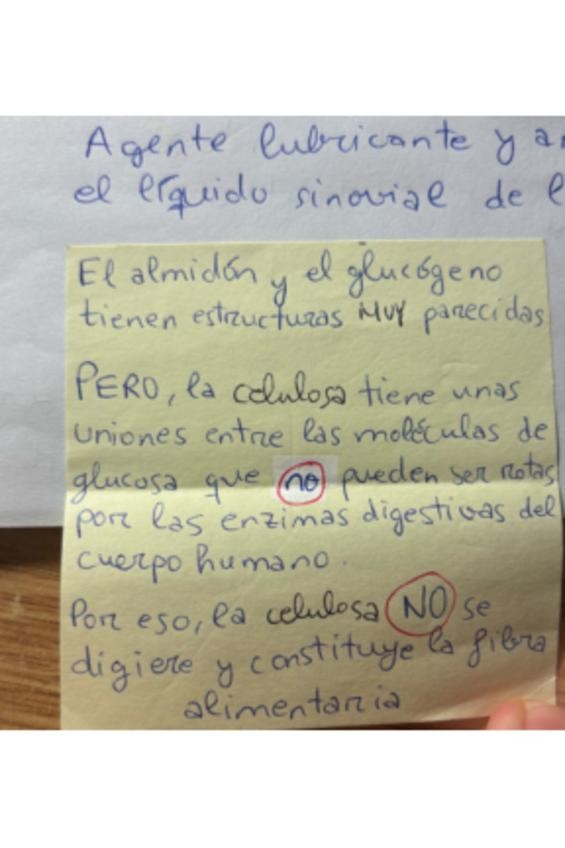 Agente lubricante y a
el líquido sinovial de l
El almidón y el glucógeno
tienen estructuras MUY parecidas
PERO, la celulosa tiene unas
uniones entre las moléculas de
glucosa que no pueden ser rotas
por las enzimas digestivas del
cuerpo humano.
Por eso, la celulosa NO se
digiere y constituye la fibra
alimentaria